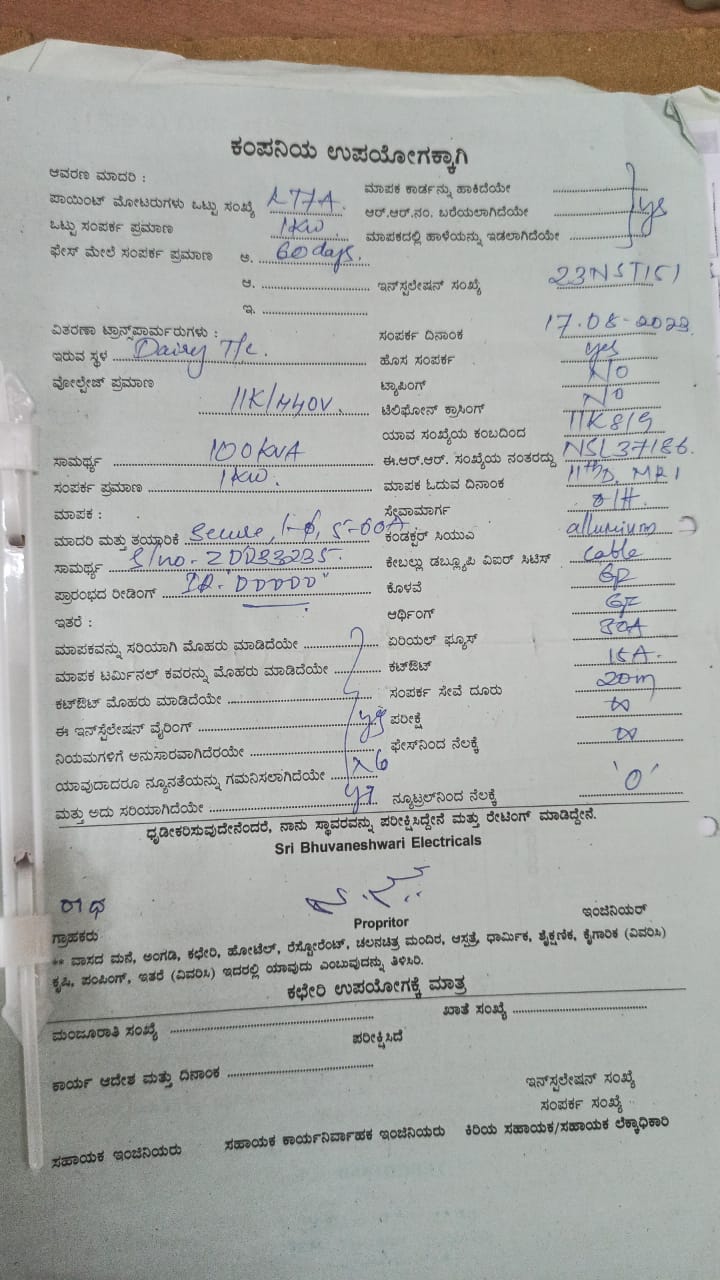 ಕಂಪನಿಯ ಉಪಯೋಗಕ್ಕಾಗಿ
ಆವರಣ ಮಾದರಿ : ಮಾಪಕ ಕಾರ್ಡನ್ನು ಹಾಕಿದೆಯೇ
ಪಾಯಿಂಟ್ ಮೋಟರುಗಳು ಒಟ್ಟು ಸಂಖ್ಯೆ ಆರ್.ಆರ್.ನಂ. ಬರೆಯಲಾಗಿದೆಯೇ yes
ಒಟ್ಟು ಸಂಪರ್ಕ ಪ್ರಮಾಣ 1KW. ಮಾಪಕದಲ್ಲಿ ಹಾಳೆಯನ್ನು ಇಡಲಾಗಿದೆಯೇ
ಫೇಸ್ ಮೇಲೆ ಸಂಪರ್ಕ ಪ್ರಮಾಣ ಅ. 60 days.
ಆ. ಇನ್‌ಸ್ಟಲೇಷನ್ ಸಂಖ್ಯೆ 23NST151
ಇ.
ವಿತರಣಾ ಟ್ರಾನ್ಸ್‌ಪಾರ್ಮರುಗಳು : ಸಂಪರ್ಕ ದಿನಾಂಕ 17.08-2023
ಇರುವ ಸ್ಥಳ Dairy T/c. ಹೊಸ ಸಂಪರ್ಕ yes
ವೋಲ್ಟೇಜ್ ಪ್ರಮಾಣ 11K/440V. ಟ್ಯಾಪಿಂಗ್ No
ಟೆಲಿಫೋನ್ ಕ್ರಾಸಿಂಗ್ No
ಯಾವ ಸಂಖ್ಯೆಯ ಕಂಬದಿಂದ 11K8/9
ಸಾಮರ್ಥ್ಯ 100KVA ಈ.ಆರ್.ಆರ್. ಸಂಖ್ಯೆಯ ನಂತರದ್ದು NSL37186.
ಸಂಪರ್ಕ ಪ್ರಮಾಣ 1KW. ಮಾಪಕ ಓದುವ ದಿನಾಂಕ
ಮಾಪಕ : ಸೇವಾಮಾರ್ಗ O/H.
ಮಾದರಿ ಮತ್ತು ತಯ್ಯಾರಿಕೆ Secure, 1-ϕ, 5-60A ಕಂಡಕ್ಟರ್ ಸಿಯುಎ allumium
ಸಾಮರ್ಥ್ಯ S/no- ಕೇಬಲ್ಲು ಡಬ್ಲ್ಯೂಪಿ ವಿಐರ್ ಸಿಟಿಸ್ cable
ಪ್ರಾರಂಭದ ರೀಡಿಂಗ್ ಕೊಳವೆ GP
ಇತರೆ : ಆರ್ಥಿಂಗ್
ಮಾಪಕವನ್ನು ಸರಿಯಾಗಿ ಮೊಹರು ಮಾಡಿದೆಯೇ ಏರಿಯಲ್ ಫ್ಯೂಸ್ 30A
ಮಾಪಕ ಟರ್ಮಿನಲ್ ಕವರನ್ನು ಮೊಹರು ಮಾಡಿದೆಯೇ ಕಟ್‌ಔಟ್ 15A.
ಕಟ್‌ಔಟ್ ಮೊಹರು ಮಾಡಿದೆಯೇ ಸಂಪರ್ಕ ಸೇವೆ ದೂರು 20m
ಈ ಇನ್‌ಸ್ಟೆಲೇಷನ್ ವೈರಿಂಗ್ yes ಪರೀಕ್ಷೆ ∞
ನಿಯಮಗಳಿಗೆ ಅನುಸಾರವಾಗಿದೆರಯೇ ಫೇಸ್‌ನಿಂದ ನೆಲಕ್ಕೆ ∞
ಯಾವುದಾದರೂ ನ್ಯೂನತೆಯನ್ನು ಗಮನಿಸಲಾಗಿದೆಯೇ No
ಮತ್ತು ಅದು ಸರಿಯಾಗಿದೆಯೇ ನ್ಯೂಟ್ರಲ್‌ನಿಂದ ನೆಲಕ್ಕೆ 'O'
ಧೃಡೀಕರಿಸುವುದೇನೆಂದರೆ, ನಾನು ಸ್ಥಾವರವನ್ನು ಪರೀಕ್ಷಿಸಿದ್ದೇನೆ ಮತ್ತು ರೇಟಿಂಗ್ ಮಾಡಿದ್ದೇನೆ.
Sri Bhuvaneshwari Electricals
ರಾಧ
ಗ್ರಾಹಕರು Propritor ಇಂಜಿನಿಯರ್
** ವಾಸದ ಮನೆ, ಅಂಗಡಿ, ಕಛೇರಿ, ಹೋಟೆಲ್, ರೆಸ್ಟೋರೆಂಟ್, ಚಲನಚಿತ್ರ ಮಂದಿರ, ಆಸ್ಪತ್ರೆ, ಧಾರ್ಮಿಕ, ಶೈಕ್ಷಣಿಕ, ಕೈಗಾರಿಕ (ವಿವರಿಸಿ)
ಕೃಷಿ, ಪಂಪಿಂಗ್, ಇತರೆ (ವಿವರಿಸಿ) ಇದರಲ್ಲಿ ಯಾವುದು ಎಂಬುವುದನ್ನು ತಿಳಿಸಿರಿ.
ಕಛೇರಿ ಉಪಯೋಗಕ್ಕೆ ಮಾತ್ರ
ಮಂಜೂರಾತಿ ಸಂಖ್ಯೆ ಖಾತೆ ಸಂಖ್ಯೆ
ಪರೀಕ್ಷಿಸಿದೆ
ಕಾರ್ಯ ಆದೇಶ ಮತ್ತು ದಿನಾಂಕ ಇನ್‌ಸ್ಟಲೇಷನ್ ಸಂಖ್ಯೆ
ಸಂಪರ್ಕ ಸಂಖ್ಯೆ
ಸಹಾಯಕ ಇಂಜಿನಿಯರು ಸಹಾಯಕ ಕಾರ್ಯನಿರ್ವಾಹಕ ಇಂಜಿನಿಯರು ಕಿರಿಯ ಸಹಾಯಕ/ಸಹಾಯಕ ಲೆಕ್ಕಾಧಿಕಾರಿ